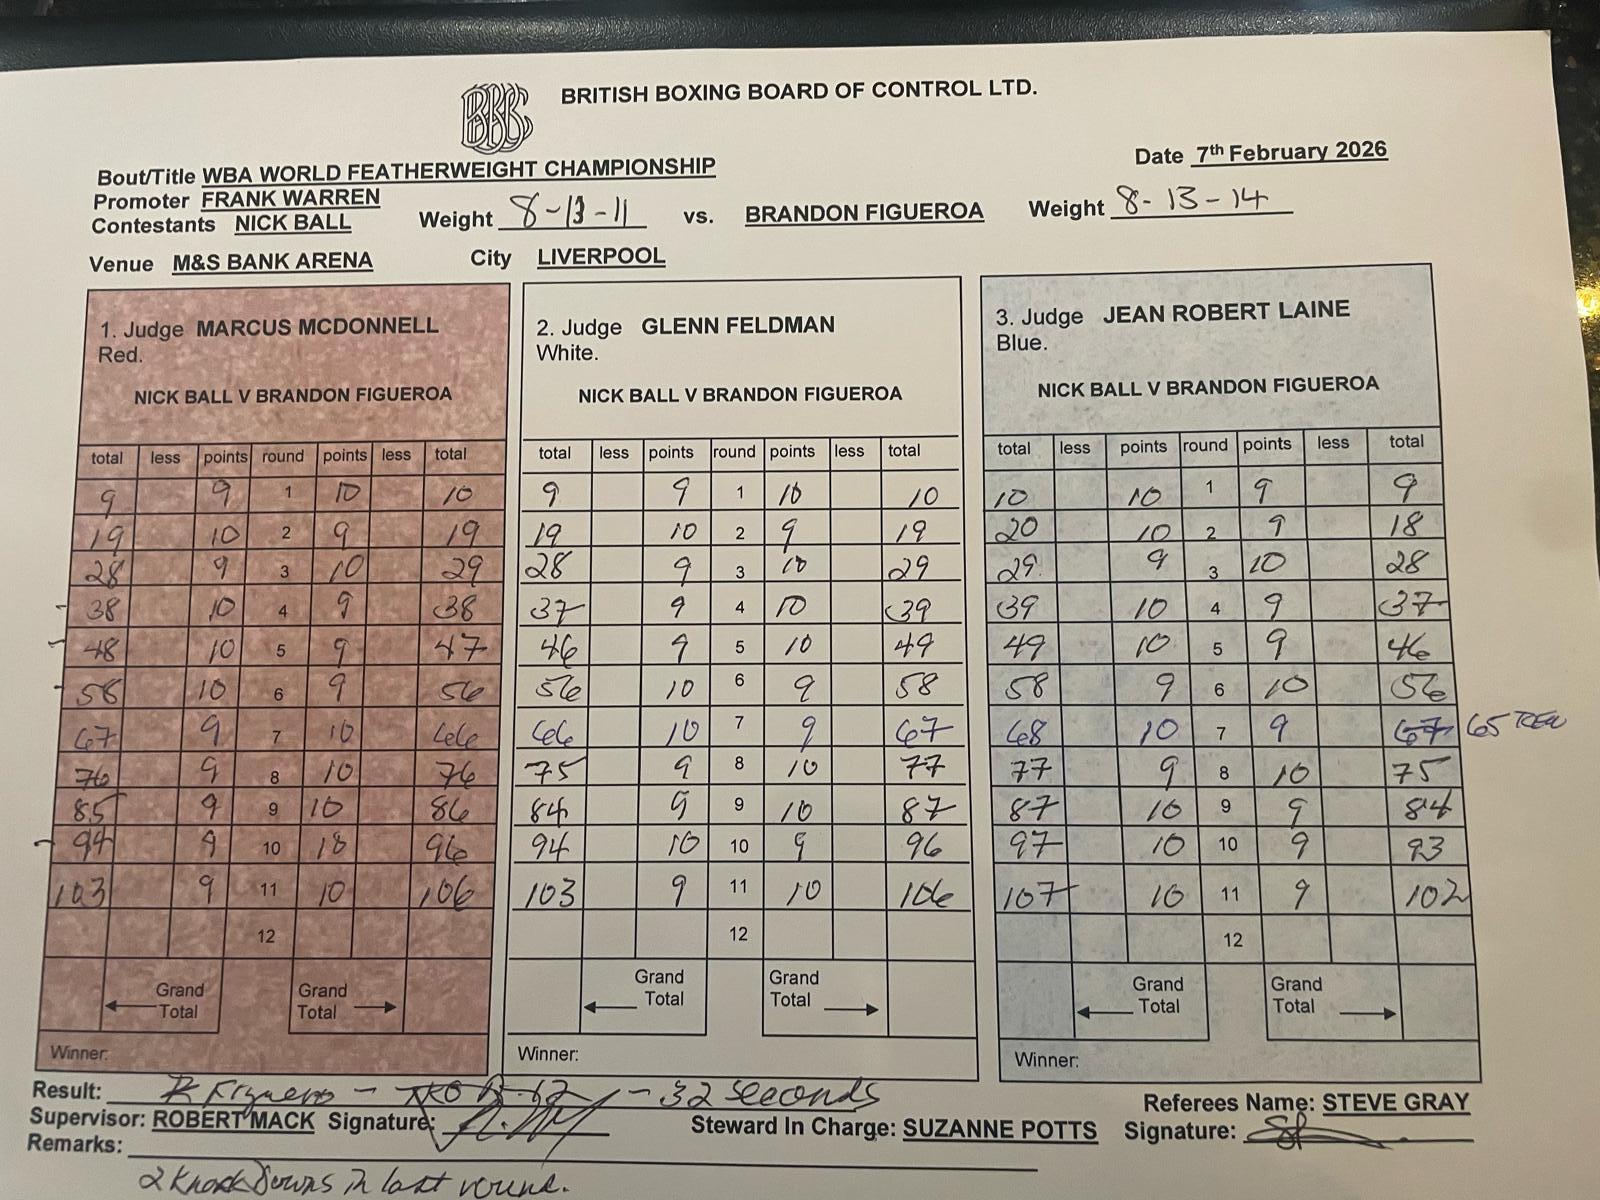 BBBC
BRITISH BOXING BOARD OF CONTROL LTD.
Bout/Title WBA WORLD FEATHERWEIGHT CHAMPIONSHIP
Date 7th February 2026
Promoter FRANK WARREN
Contestants NICK BALL Weight 8-13-11 vs. BRANDON FIGUEROA Weight 8-13-14
Venue M&S BANK ARENA City LIVERPOOL
1. Judge MARCUS MCDONNELL
Red.
NICK BALL V BRANDON FIGUEROA
total less points round points less total
9 9 1 10 10
19 10 2 9 19
28 9 3 10 29
38 10 4 9 38
48 10 5 9 47
58 10 6 9 56
67 9 7 10 66
76 9 8 10 76
85 9 9 10 86
94 9 10 10 96
103 9 11 10 106
12
Grand Total
Grand Total
Winner:
2. Judge GLENN FELDMAN
White.
NICK BALL V BRANDON FIGUEROA
total less points round points less total
9 9 1 10 10
19 10 2 9 19
28 9 3 10 29
37 9 4 10 39
46 9 5 10 49
56 10 6 9 58
66 10 7 9 67
75 9 8 10 77
84 9 9 10 87
94 10 10 9 96
103 9 11 10 106
12
Grand Total
Grand Total
Winner:
3. Judge JEAN ROBERT LAINE
Blue.
NICK BALL V BRANDON FIGUEROA
total less points round points less total
10 10 1 9 9
20 10 2 9 18
29 9 3 10 28
39 10 4 9 37
49 10 5 9 46
58 9 6 10 56
68 10 7 9 67 65
77 9 8 10 75
87 10 9 9 84
97 10 10 9 93
107 10 11 9 102
12
Grand Total
Grand Total
Winner:
Result: Figueroa - TKO R-12 - 32 seconds
Referees Name: STEVE GRAY
Supervisor: ROBERT MACK Signature:
Steward In Charge: SUZANNE POTTS Signature:
Remarks:
2 KnockDowns in last round.